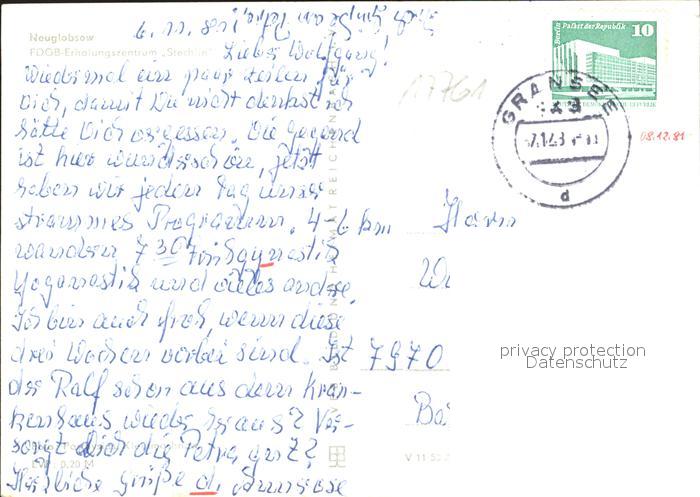 6.11.81
Neuglobsow
FDGB-Erholungszentrum „Stechlin"
Lieber Wolfgang!
Wiedermal ein paar Zeilen für
Dich, damit Du nicht denkst ich
hätte Dich vergessen. Die Gegend
ist hier wunderschön, jetzt
haben wir jeden Tag unser
strammes Programm. 4-6 km
wandern 7 30 Frühgymnastik
Yoganastik und vieles andre.
Ich bin auch froh, wenn diese
drei Wochen vorbei sind. Ist
der Ralf schon aus dem Kran-
kenhaus wieder heraus? Ver-
sorgt dich die Petra gut?
Herzliche Grüße d.
EVP 0,20 M
V 11 50
17761
Berlin Palast der Republik
10
GRANSEE
d
08.12.81
Herrn
7970
privacy protection
Datenschutz